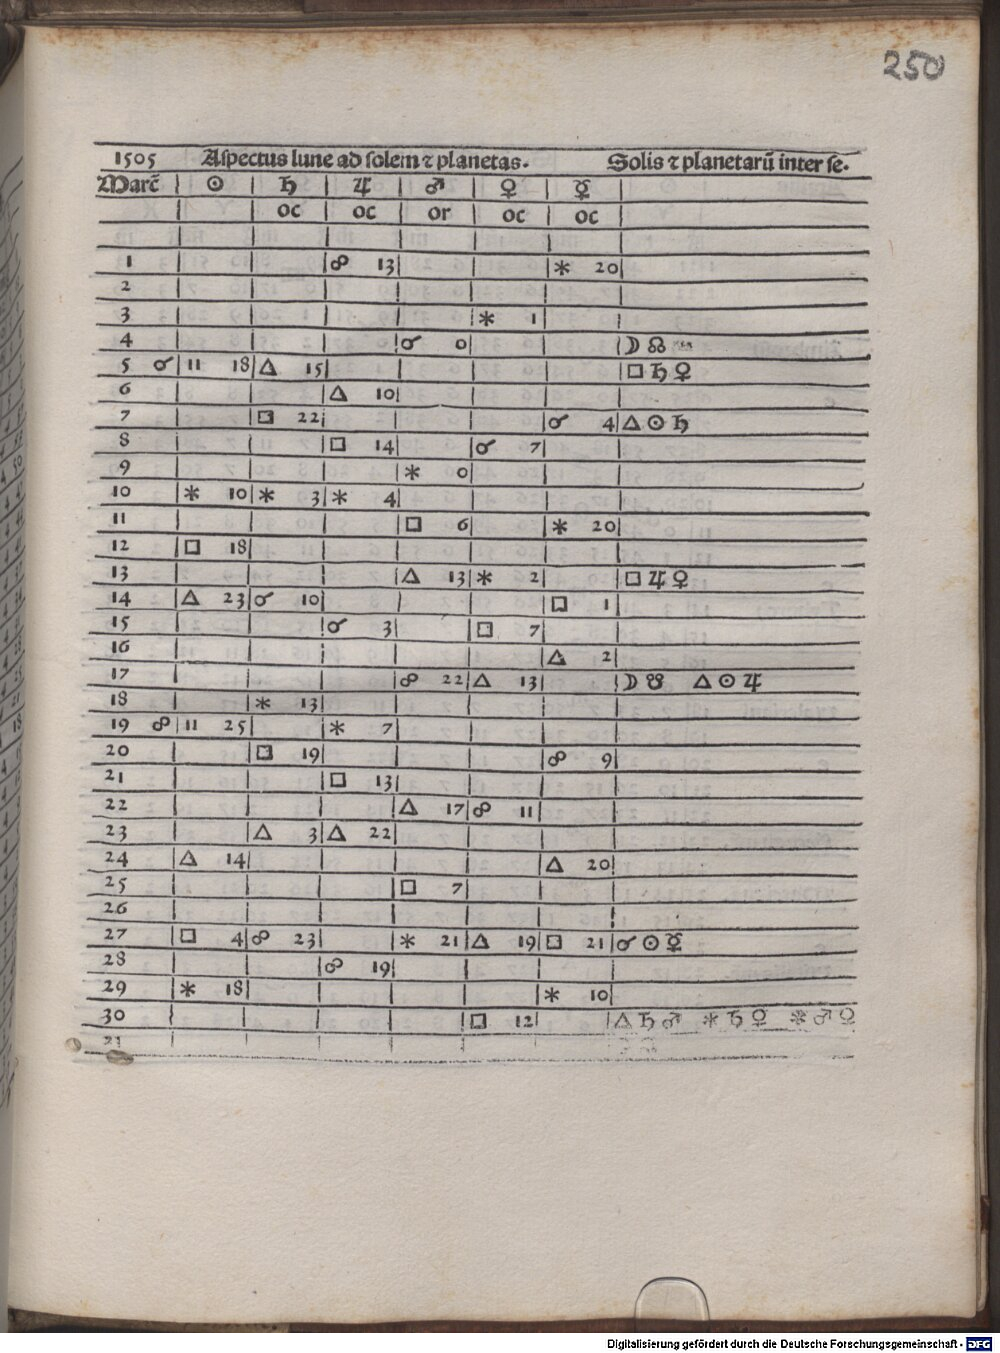 250
1505 Aspectus lune ad solem ⁊ planetas. Solis ⁊ planetarū inter se.
Marc̄ ☉ ♄ ♃ ♂ ♀ ☿
oc oc or oc oc
1 ☍ 13 ⚹ 20
2
3 ⚹ 1
4 ☌ 0 ☽ ☊
5 ☌ 11 18 △ 15 □ ♄ ♀
6 △ 10
7 □ 22 ☌ 4 △ ☉ ♄
8 □ 14 ☌ 7
9 ⚹ 0
10 ⚹ 10 ⚹ 3 ⚹ 4
11 □ 6 ⚹ 20
12 □ 18
13 △ 13 ⚹ 2 □ ♃ ♀
14 △ 23 ☌ 10 □ 1
15 ☌ 3 □ 7
16 △ 2
17 ☍ 22 △ 13 ☽ ☋ △ ☉ ♃
18 ⚹ 13
19 ☍ 11 25 ⚹ 7
20 □ 19 ☍ 9
21 □ 13
22 △ 17 ☍ 11
23 △ 3 △ 22
24 △ 14 △ 20
25 □ 7
26
27 □ 4 ☍ 23 ⚹ 21 △ 19 □ 21 ☌ ☉ ☿
28 ☍ 19
29 ⚹ 18 ⚹ 10
30 □ 12 △ ♄ ♂ ⚹ ♄ ♀ ⚹ ♂ ♀
Digitalisierung gefördert durch die Deutsche Forschungsgemeinschaft - DFG